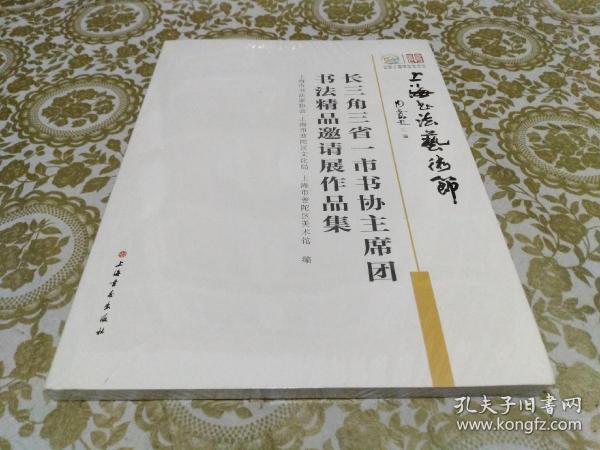 上海书法艺术節
长三角三省一市书协主席团
书法精品邀请展作品集
上海市书法家协会 上海市普陀区文化局 上海市普陀区美术馆 编
上海书画出版社
孔夫子旧书网
www.kongfz.com